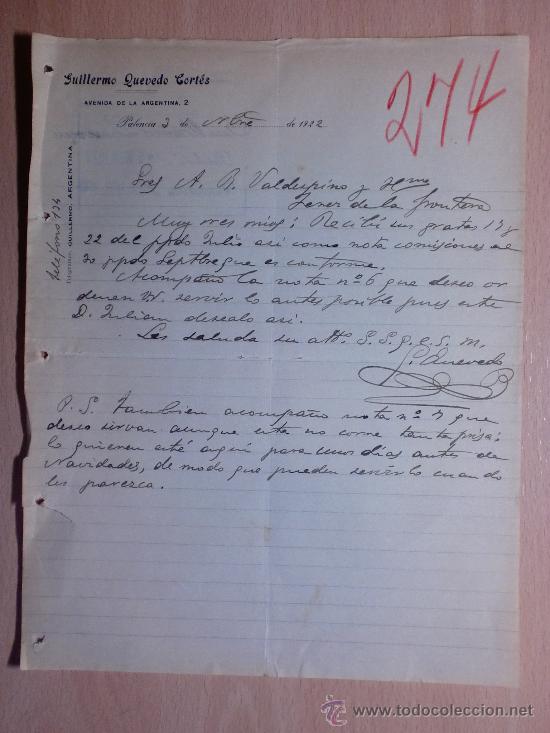 Guillermo Quevedo Cortés
274
AVENIDA DE LA ARGENTINA, 2
Palencia 3 de Nbre de 1922
Telegramas: GUILLERMO. ARGENTINA
Teléfono 134
Sres A. R. Valdespino y Hmo
Jerez de la frontera
Muy sres mios: Recibí sus gratas 17 y
22 del ppdo Julio asi como nota comisiones de
30 ppdo Septbre que es conforme.
Acompaño la nota nº 6 que deseo or
denan W. servirlo antes posible pues este
D. Julian desealo asi.
Les saluda su atto. S. S. q. e. s. m.
G. Quevedo
P. S. Tambien acompaño nota nº 7 que
deseo sirvan aunque esta no corre tanta prisa:
lo quieren esté aquí para unos dias antes de
Navidades, de modo que pueden servirlo cuando
les parezca.
www.todocoleccion.net